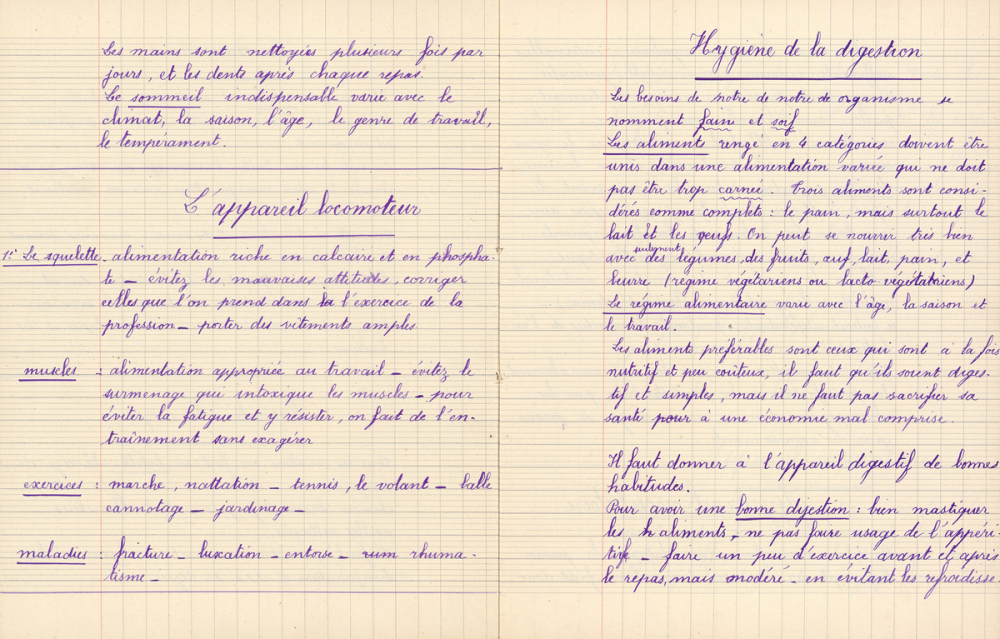 Les mains sont nettoyées plusieurs fois par
jours, et les dents après chaque repas.
Le sommeil indispensable varie avec le
climat, la saison, l'âge, le genre de travail,
le tempérament.
L'appareil locomoteur
1° Le squelette. alimentation riche en calcaire et en phospha-
te – évitez les mauvaises attitudes, corriger
celles que l'on prend dans la l'exercice de la
profession – porter des vêtements amples
muscles : alimentation appropriée au travail – évitez le
surmenage qui intoxique les muscles – pour
éviter la fatigue et y résister, on fait de l'en-
traînement sans exagérer
exercices : marche, nattation – tennis, le volant – balle
cannotage – jardinage –
maladies : fracture – luxation – entorse – rum rhuma-
tisme –
Hygiène de la digestion
Les besoins de notre de notre de organisme se
nomment faim et soif
Les aliments rengé en 4 catégories doivent être
unis dans une alimentation variée qui ne doit
pas être trop carneé. Trois aliments sont consi-
dérés comme complets : le pain, mais surtout le
lait et les oeufs. On peut se nourrer très bien
avec seulement des légumes, des fruits, œuf, lait, pain, et
beurre (régime végétariens ou lacto végétatariens)
Le régime alimentaire varu avec l'âge, la saison et
le travail.
Les aliments préférables sont ceux qui sont à la fois
nutritif et peu coûteux, il faut qu'ils soient diges-
tif et simples, mais il ne faut pas sacrifier sa
santé pour à une économie mal comprise.
Il faut donner à l'appareil digestif de bonnes
habitudes.
Pour avoir une bonne dijestion : bien mastiquer
les aliments, ne pas faire usage de l'appéri-
tif – faire un peu d'exercice avant et après
le repas, mais modéré – en évitant les refroidisse.